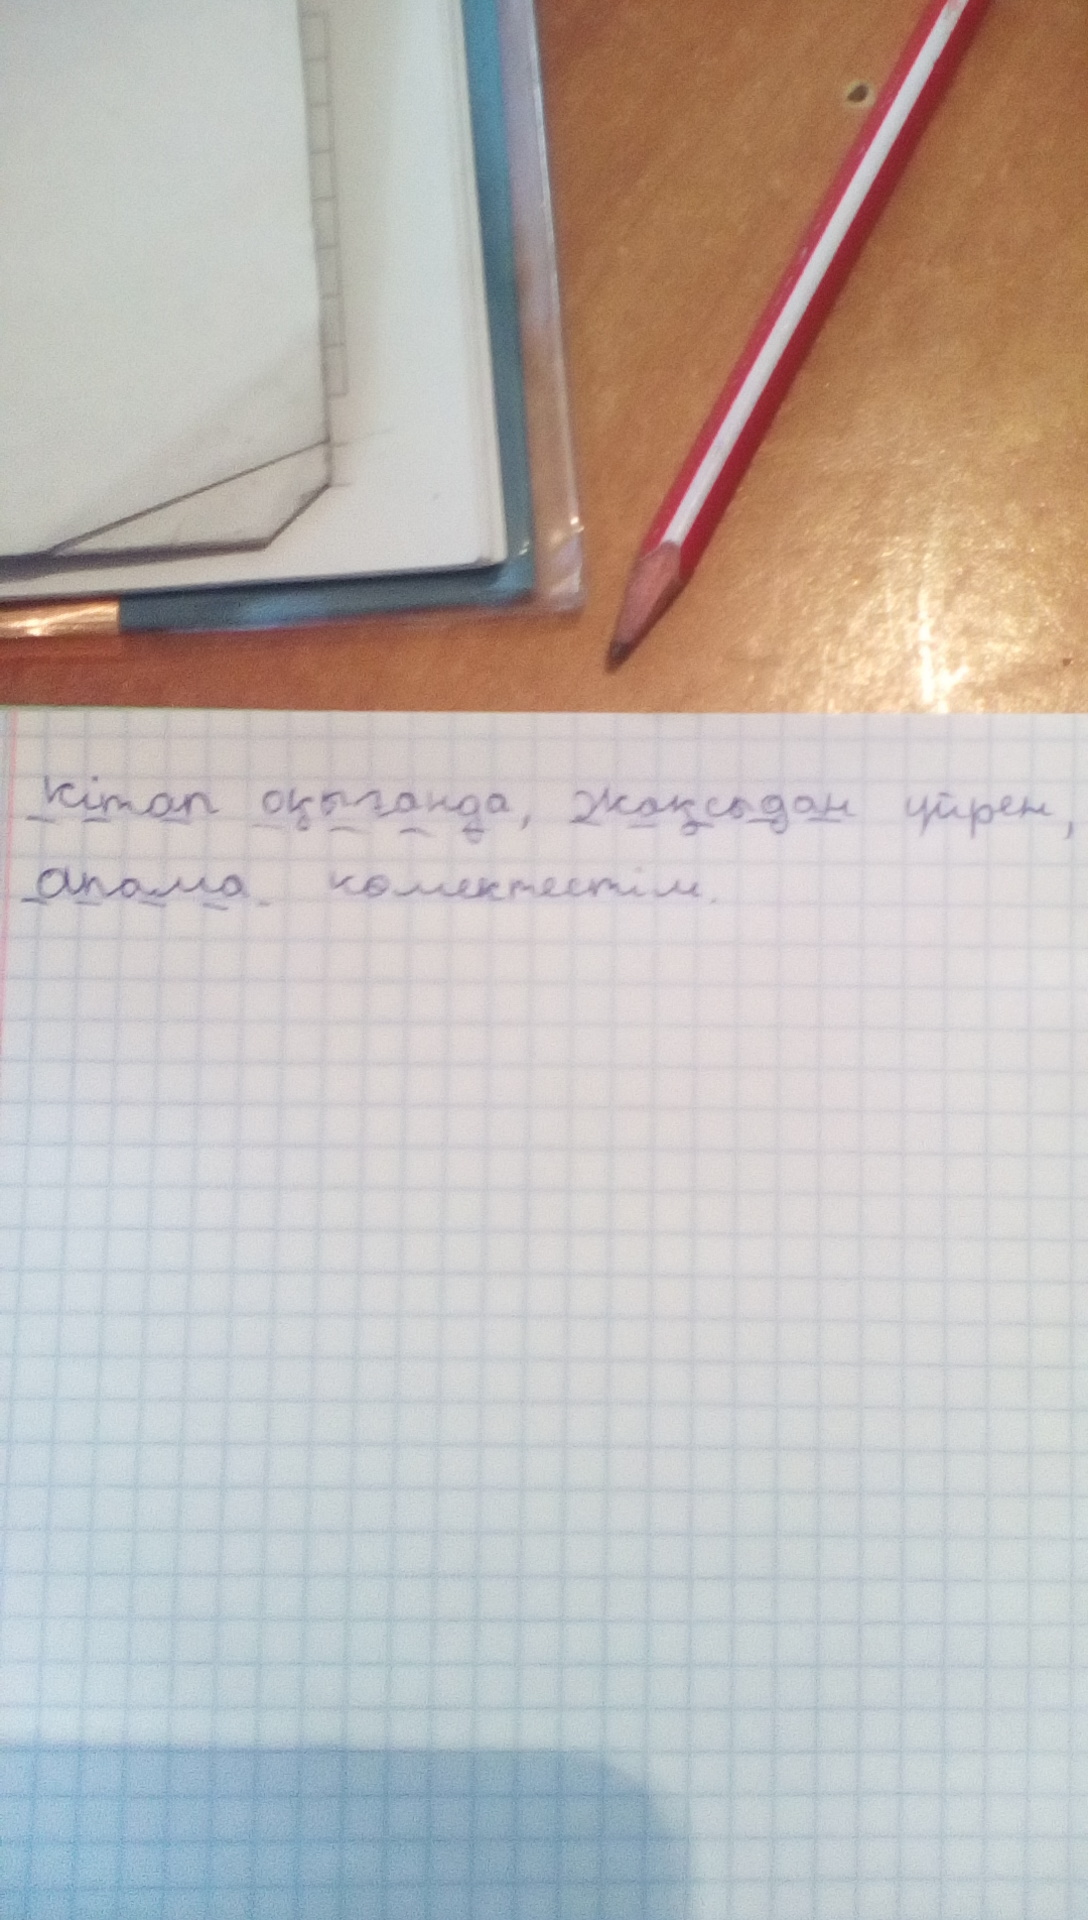 Кітап оқығанда, Жақсыдан үйрен,
Апама көмектестім.